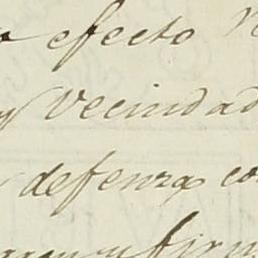 efecto
y Vecindad
defenza co
firm